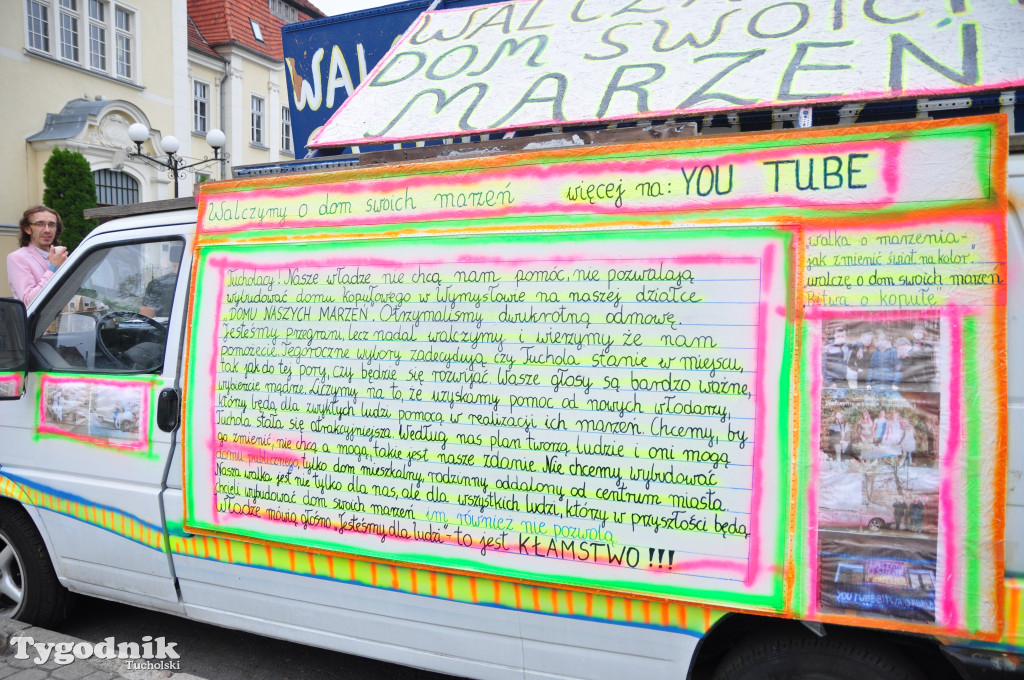 WAL
WALCZYMY O
DOM SWOICH
MARZEŃ
Walczymy o dom swoich marzeń
więcej na: YOU TUBE
Tucholacy! Nasze władze nie chcą nam pomóc, nie pozwalają
wybudować domu kopułowego w Wymysłowie na naszej działce
„DOMU NASZYCH MARZEŃ". Otrzymaliśmy dwukrotną odmowę.
Jesteśmy przegrani, lecz nadal walczymy i wierzymy że nam
pomożecie. Tegoroczne wybory zadecydują, czy Tuchola stanie w miejscu,
tak jak do tej pory, czy będzie się rozwijać. Wasze głosy są bardzo ważne,
wybierzcie mądrze. Liczymy na to, że uzyskamy pomoc od nowych włodarzy,
którzy będą dla zwykłych ludzi pomocą w realizacji ich marzeń. Chcemy, by
Tuchola stała się atrakcyjniejsza. Według nas plan tworzą ludzie i oni mogą
go zmienić, nie chcą a mogą, takie jest nasze zdanie. Nie chcemy wybudować
domu publicznego, tylko dom mieszkalny, rodzinny oddalony od centrum miasta.
Nasza walka jest nie tylko dla nas, ale dla wszystkich ludzi, którzy w przyszłości będą
chcieli wybudować dom swoich marzeń im również nie pozwolą.
Władze mówią głośno „Jesteśmy dla ludzi" - to jest KŁAMSTWO!!!
„walka o marzenia-
jak zmienić świat na kolor"
walczę o dom swoich marzeń
Bitwa o kopułę
Tygodnik
Tucholski